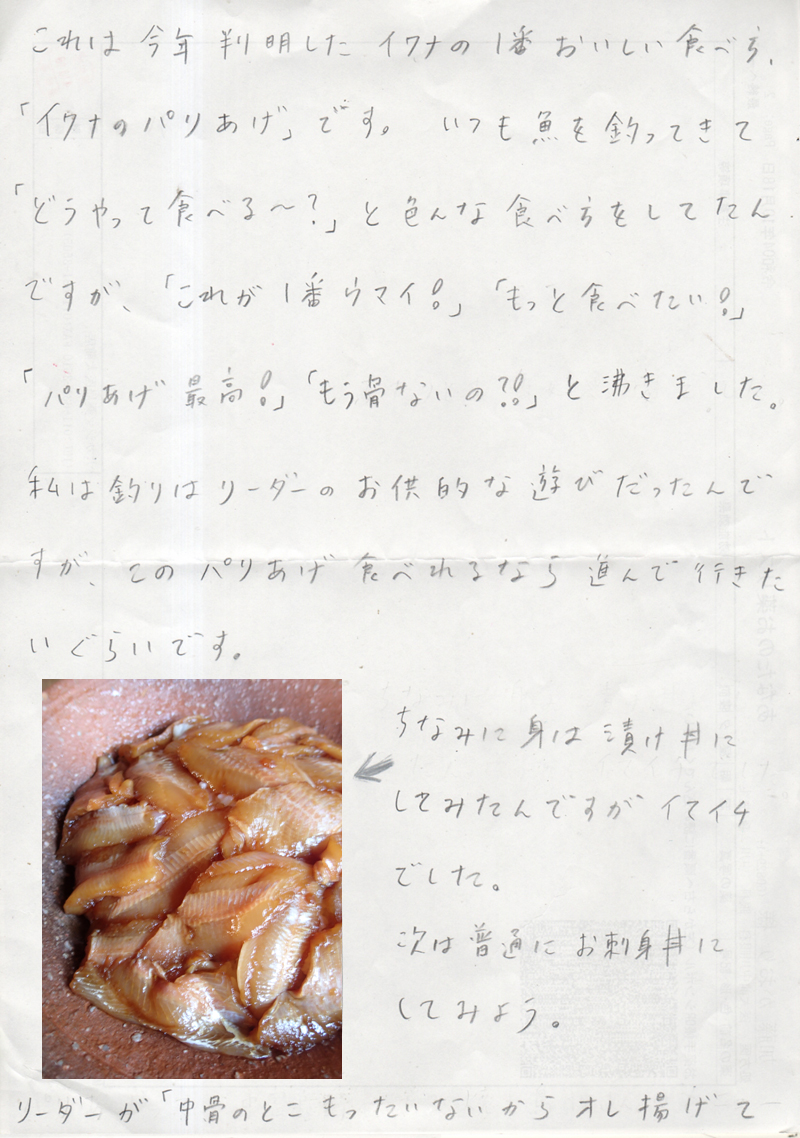 これは今年判明したイワナの1番おいしい食べ方、
「イワナのパリあげ」です。 いつも魚を釣ってきて
「どうやって食べる〜？」と色んな食べ方をしてたん
ですが、「これが1番ウマイ！」「もっと食べたい！」
「パリあげ最高！」「もう骨ないの？！」と沸きました。
私は釣りはリーダーのお供的な遊びだったんで
すが、このパリあげ食べれるなら進んで行きた
いぐらいです。
ちなみに身は漬け丼に
してみたんですがイマイチ
でした。
次は普通にお刺身丼に
してみよう。
リーダーが「中骨のとこもったいないからオレ揚げて